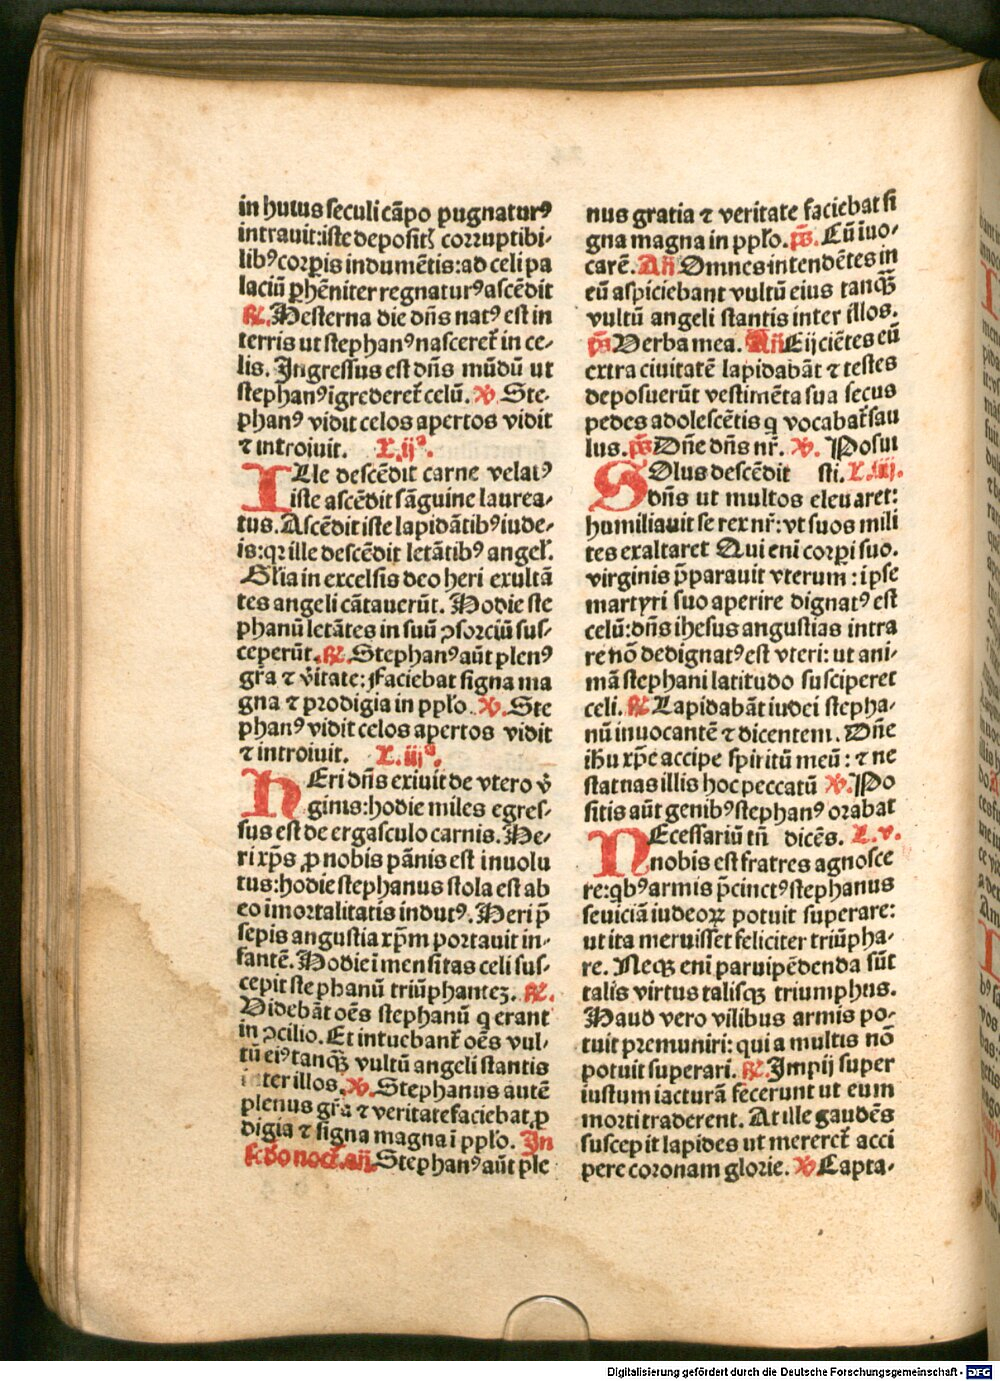 in huius seculi cāpo pugnaturꝰ
intrauit: iste depositꝭ corruptibi-
libꝰ corꝑis indumētis: ad celi pa
laciū ꝑhēniter regnaturꝰ ascēdit
℟. Hesterna die dn̄s natꝰ est in
terris ut stephanꝰ nasceret᷑ in ce-
lis. Ingressus est dn̄s mūdū ut
stephanꝰ igrederet᷑ celū. ℣. Ste-
phanꝰ vidit celos apertos vidit
⁊ introiuit. L. ijª.
ILle descēdit carne velatꝰ
iste ascēdit sāguine laurea-
tus. Ascēdit iste lapidātibꝰ iude-
is: qꝛ ille descēdit letātibꝰ angeł.
Glīa in excelsis deo heri exultā
tes angeli cātauerūt. Hodie ste
phanū letātes in suū ꝯsorciū sus-
ceperūt. ℟. Stephanꝰ aūt plenꝰ
gr̄a ⁊ v̄itate: faciebat signa ma
gna ⁊ prodigia in ppło. ℣. Ste
phanꝰ vidit celos apertos vidit
⁊ introiuit. L. iijª.
HEri dn̄s exiuit de vtero v̄
ginis: hodie miles egres-
sus est de ergasculo carnis. He-
ri xp̄s ꝓ nobis pānis est inuolu
tus: hodie stephanus stola est ab
eo īmortalitatis indutꝰ. Heri p̄
sepis angustia xp̄m portauit in-
fantē. Hodie īmensitas celi sus-
cepit stephanū triūphanteꝫ. ℟.
Videbāt oēs stephanū q erant
in ꝯcilio. Et intuebant᷑ oēs vul-
tū eiꝰ tanqꝫ̄ vultū angeli stantis
inter illos. ℣. Stephanus autē
plenus gr̄a ⁊ veritate faciebat ꝓ
digia ⁊ signa magna ī ppło. In
sc̄do noct. an̄. Stephanꝰ aūt ple
nus gratia ⁊ veritate faciebat si
gna magna in ppło. p̄s. Cū īuo-
carē. An̄ Omnes intendētes in
eū aspiciebant vultū eius tanqꝫ̄
vultū angeli stantis inter illos.
p̄s Verba mea. An̄ Eijciētes eū
extra ciuitatē lapidabāt ⁊ testes
deposuerūt vestimēta sua secus
pedes adolescētis q vocabat᷑ sau
lus. p̄s Dn̄e dn̄s nr̄. ℣. Posui
SOlus descēdit sti. L. iiij.
dn̄s ut multos eleuaret:
humiliauit se rex nr̄: vt suos mili
tes exaltaret Qui eni corꝑi suo.
virginis p̄parauit vterum: ipse
martyri suo aperire dignatꝰ est
celū: dn̄s ihesus angustias intra
re nō dedignatꝰ est vteri: ut ani-
mā stephani latitudo susciperet
celi. ℟. Lapidabāt iudei stepha-
nū inuocantē ⁊ dicentem. Dn̄e
ihū xp̄e accipe spiritū meū: ⁊ ne
statuas illis hoc peccatū ℣. Po
sitis aūt genibꝰ stephanꝰ orabat
NEcessariū tn̄ dicēs. L. v.
nobis est fratres agnosce
re: qbꝰ armis p̄cinctꝰ stephanus
seuiciā iudeoꝝ potuit superare:
ut ita meruisset feliciter triūpha-
re. Neqꝫ eni paruipēdenda sūt
talis virtus talisqꝫ triumphus.
Haud vero vilibus armis po-
tuit premuniri: qui a multis nō
potuit superari. ℟. Impij super
iustum iacturā fecerunt ut eum
morti traderent. At ille gaudēs
suscepit lapides ut mereret᷑ acci
pere coronam glorie. ℣. Capta-
Digitalisierung gefördert durch die Deutsche Forschungsgemeinschaft - DFG